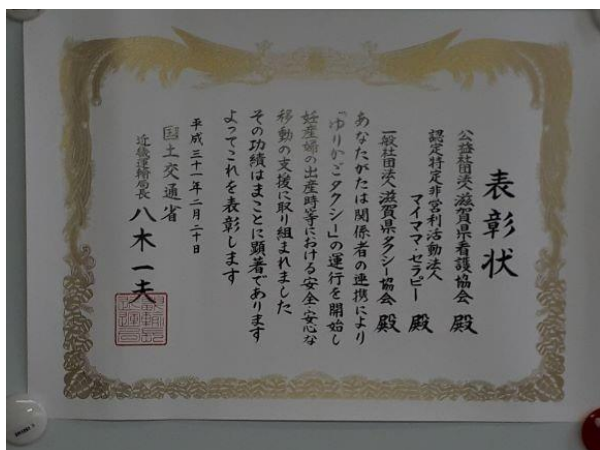 表彰状
公益社団法人滋賀県看護協会 殿
認定特定非営利活動法人
マイママ・セラピー 殿
一般社団法人滋賀県タクシー協会 殿
あなたがたは関係者の連携により
「ゆりかごタクシー」の運行を開始し
妊産婦の出産時等における安全・安心な
移動の支援に取り組まれました
その功績はまことに顕著であります
よってこれを表彰します
平成三十一年二月二十日
国土交通省
近畿運輸局長 八木一夫